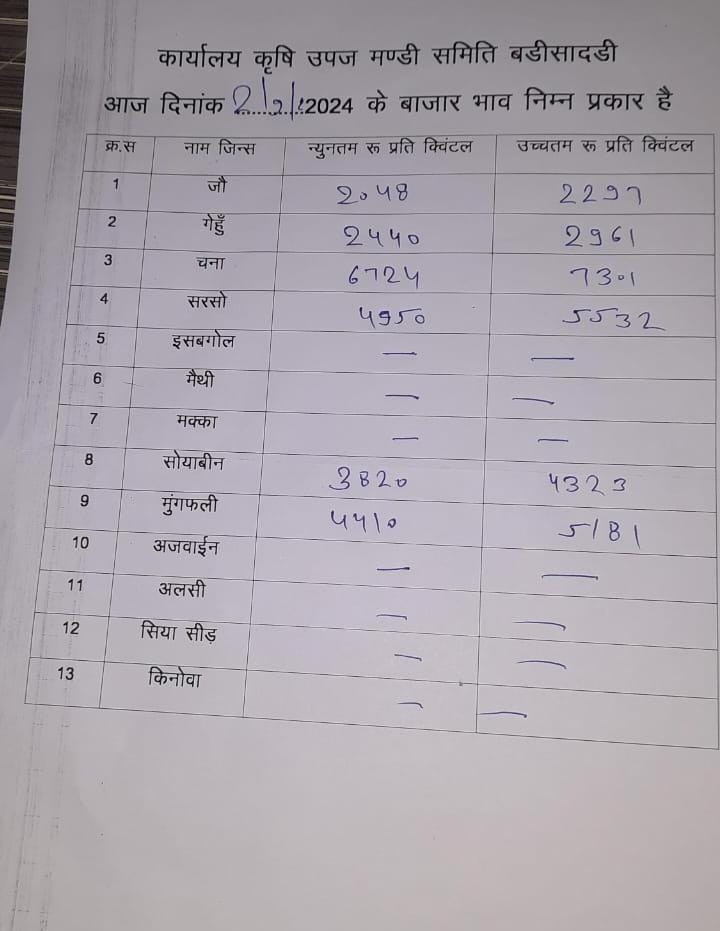 कार्यालय कृषि उपज मण्डी समिति बडीसादडी
आज दिनांक 2/9/2024 के बाजार भाव निम्न प्रकार है
क्र.स नाम जिन्स न्युनतम रू प्रति क्विंटल उच्चतम रू प्रति क्विंटल
1 जौ 2048 2297
2 गेहुँ 2440 2961
3 चना 6724 7301
4 सरसो 4950 5532
5 इसबगोल — —
6 मैथी — —
7 मक्का — —
8 सोयाबीन 3820 4323
9 मुंगफली 4410 5181
10 अजवाईन — —
11 अलसी — —
12 सिया सीड़ — —
13 किनोवा — —